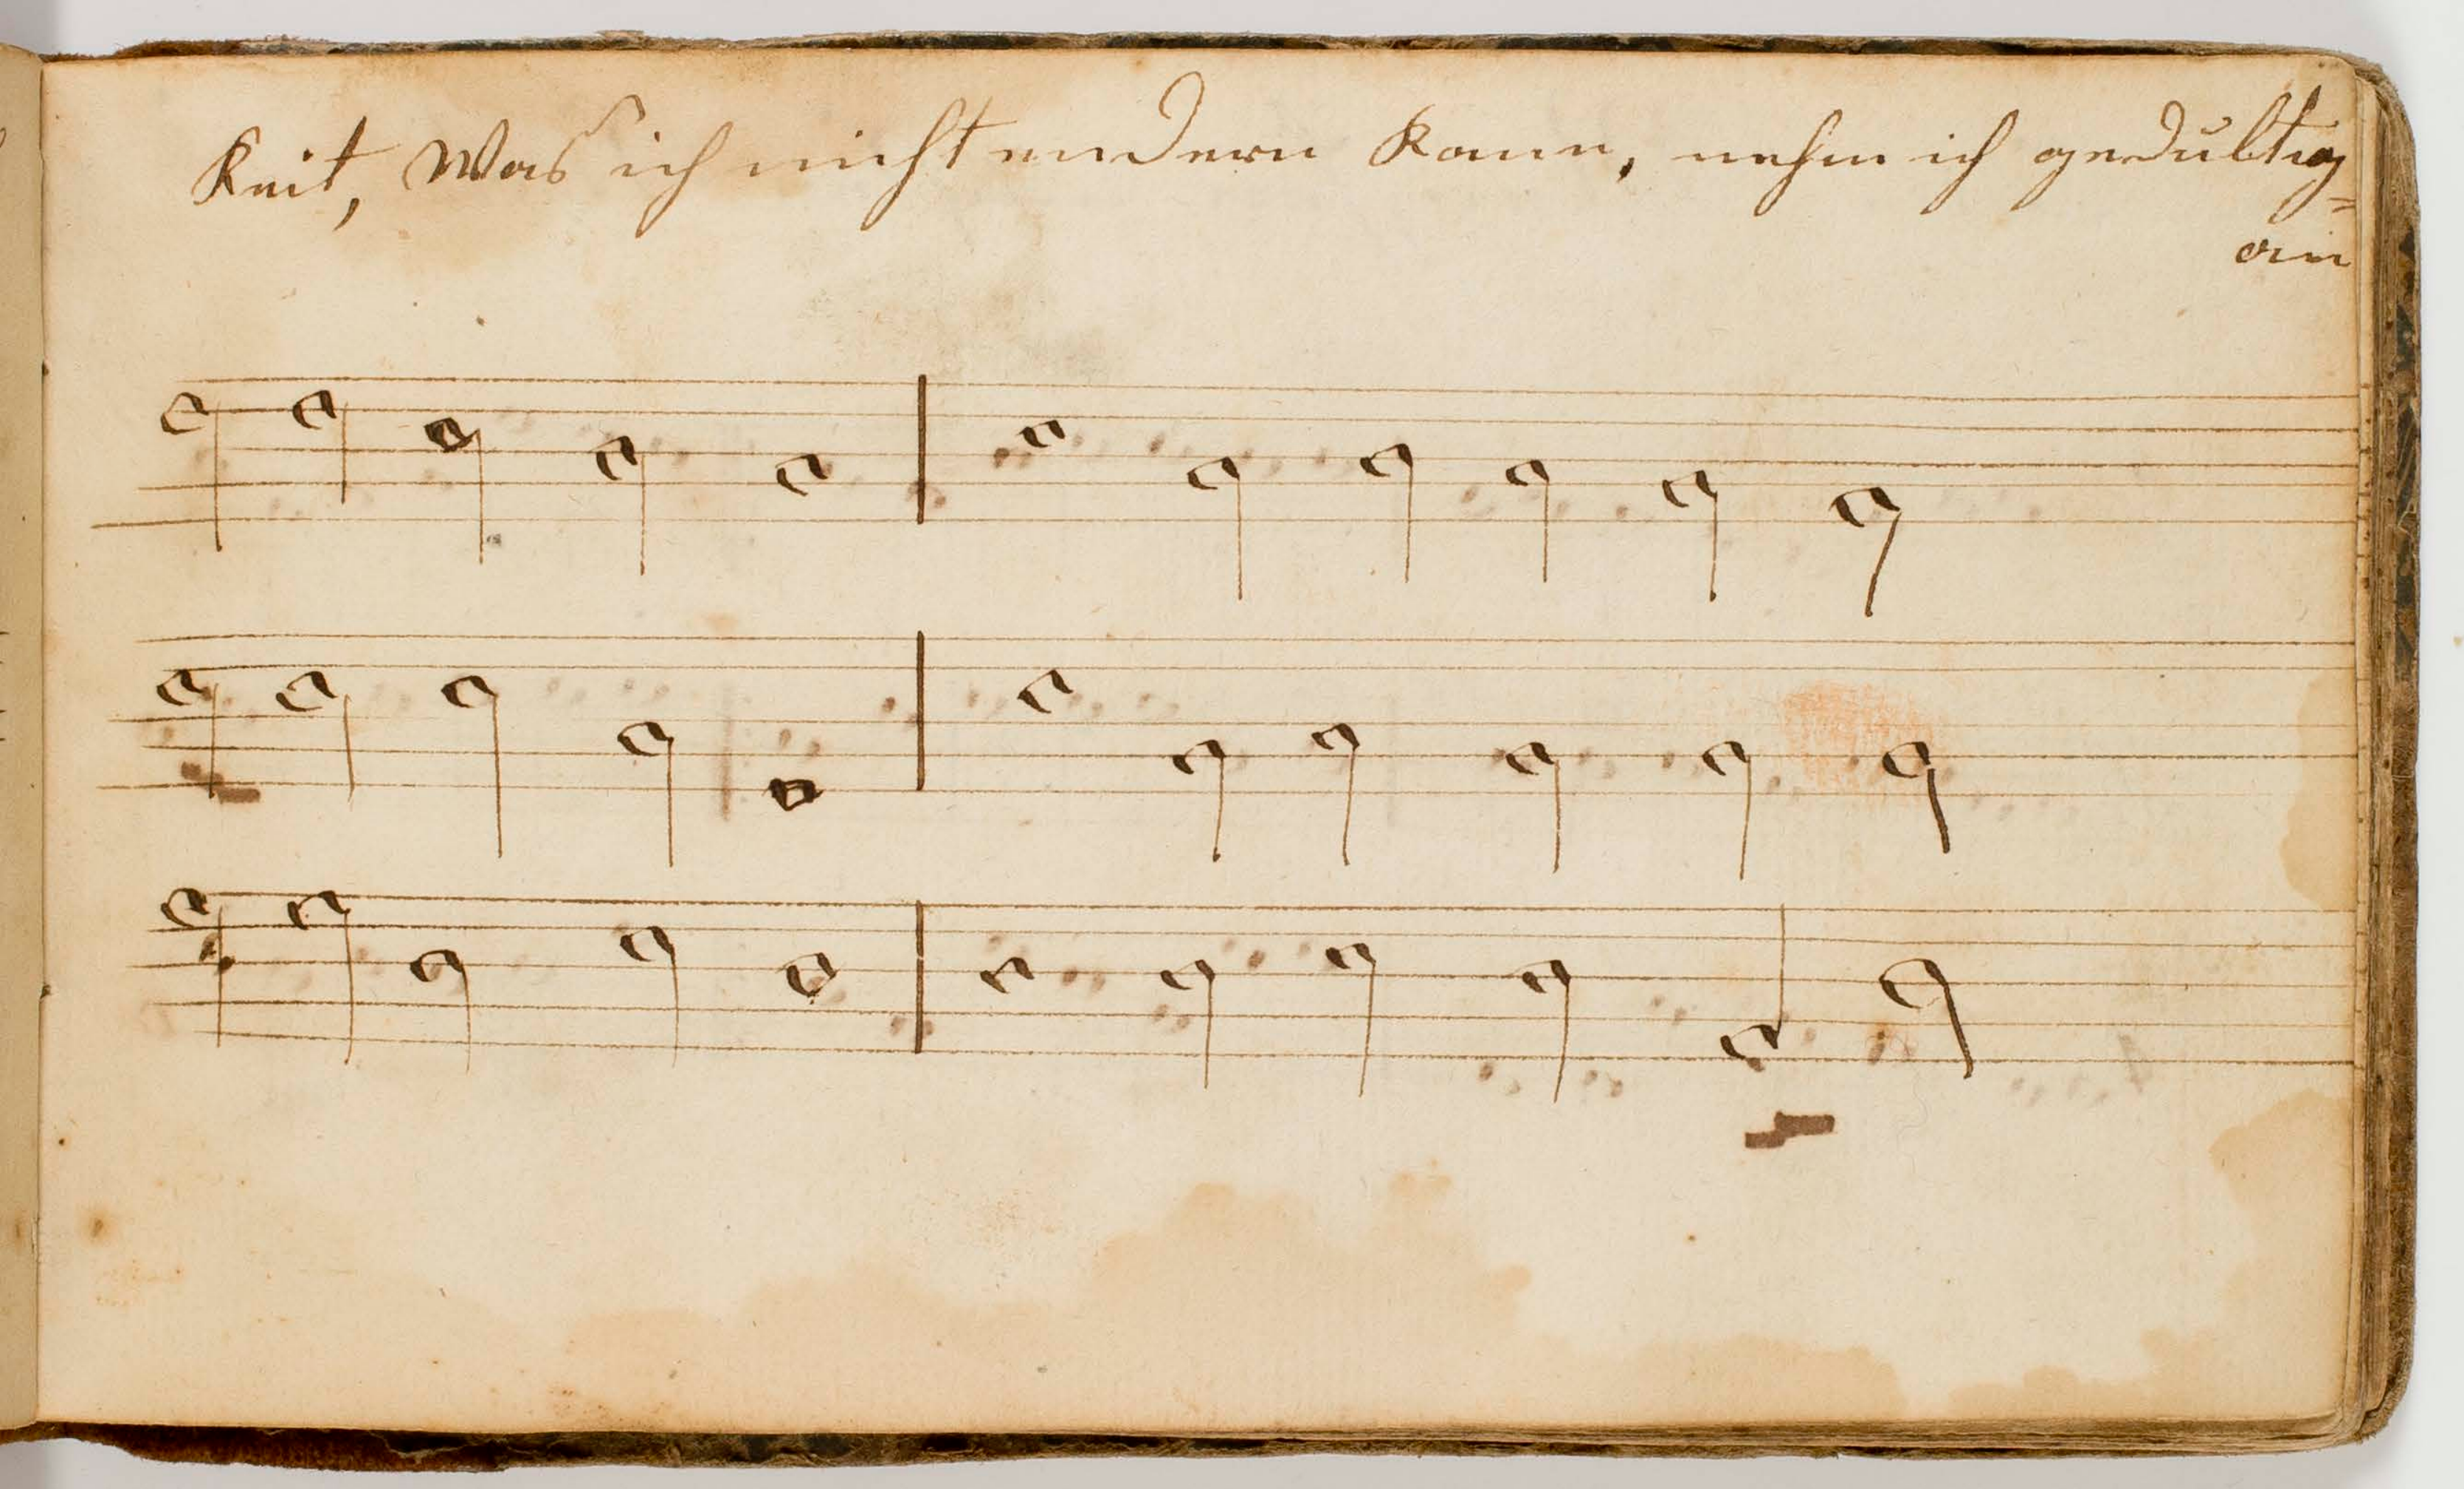 keit, Was ich nicht endern kann, nehm ich gedultig=
an